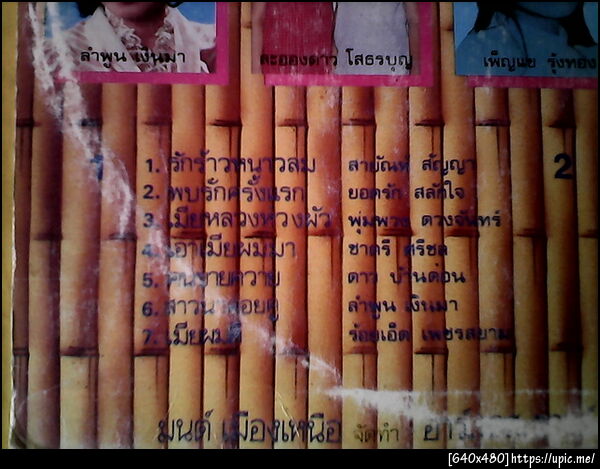 ลำพูน เงินมา
ละอองดาว โสธรบุญ
เพ็ญแข รุ้งทอง
1
2
1. รักร้าวหนาวลม สายัณห์ สัญญา
2. พบรักครั้งแรก ยอดรัก สลักใจ
3. เมียหลวงหวงผัว พุ่มพวง ดวงจันทร์
4. เอาเมียผมมา ชาตรี ศรีชล
5. คนขายควาย ดาว บ้านดอน
6. สาวนาคอยคู่ ลำพูน เงินมา
7. เมียผมดี ร้อยเอ็ด เพชรสยาม
มนต์ เมืองเหนือ จัดทำ
[640x480]https://upic.me/